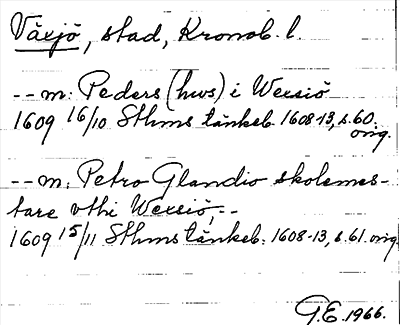 Växjö, stad, Kronob. l.
-- m. Peders (hws) i Wexiö
1609 16/10 Sthms tänkeb. 1608-13, s. 60.
orig.
-- m. Petro Glandio skolemes-
tare vthi Wexiö, --
1609 15/11 Sthms tänkeb. 1608-13, s. 61. orig.
G.E. 1966.